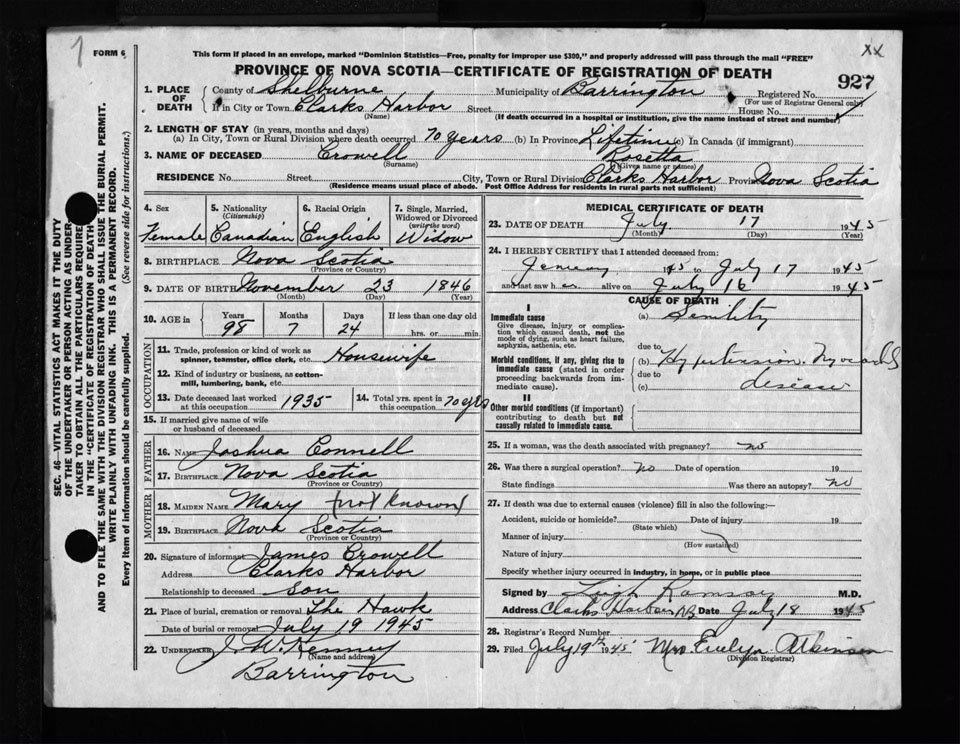 1
XX
FORM 6
This form if placed in an envelope, marked "Dominion Statistics—Free, penalty for improper use $300," and properly addressed will pass through the mail "FREE"
PROVINCE OF NOVA SCOTIA—CERTIFICATE OF REGISTRATION OF DEATH
927
1. PLACE OF DEATH
County of Shelburne Municipality of Barrington Registered No.
(For use of Registrar General only)
If in City or Town Clarks Harbor Street House No.
(Name) (If death occurred in a hospital or institution, give the name instead of street and number)
2. LENGTH OF STAY (in years, months and days)
(a) In City, Town or Rural Division where death occurred 70 years (b) In Province Lifetime (c) In Canada (if immigrant)
3. NAME OF DECEASED Crowell Rosetta
(Surname) (Given name or names)
RESIDENCE No. Street City, Town or Rural Division Clarks Harbor Province Nova Scotia
(Residence means usual place of abode. Post Office Address for residents in rural parts not sufficient)
SEC. 46—VITAL STATISTICS ACT MAKES IT THE DUTY
OF THE UNDERTAKER OR PERSON ACTING AS UNDER
TAKER TO OBTAIN ALL THE PARTICULARS REQUIRED
IN THE "CERTIFICATE OF REGISTRATION OF DEATH"
AND TO FILE THE SAME WITH THE DIVISION REGISTRAR WHO SHALL ISSUE THE BURIAL PERMIT.
WRITE PLAINLY WITH UNFADING INK. THIS IS A PERMANENT RECORD.
Every item of information should be carefully supplied. (See reverse side for instructions.)
4. Sex
Female
5. Nationality
(Citizenship)
Canadian
6. Racial Origin
English
7. Single, Married,
Widowed or Divorced
(write the word)
Widow
8. BIRTHPLACE Nova Scotia
(Province or Country)
9. DATE OF BIRTH November 23 1846
(Month) (Day) (Year)
10. AGE in Years Months Days If less than one day old
98 7 24 hrs. or min.
OCCUPATION
11. Trade, profession or kind of work as
spinner, teamster, office clerk, etc. Housewife
12. Kind of industry or business, as cotton-
mill, lumbering, bank, etc.
13. Date deceased last worked
at this occupation 1935
14. Total yrs. spent in
this occupation 70 yrs
15. If married give name of wife
or husband of deceased
FATHER
16. NAME Joshua Connell
17. BIRTHPLACE Nova Scotia
(Province or Country)
MOTHER
18. MAIDEN NAME Mary (not known)
19. BIRTHPLACE Nova Scotia
(Province or Country)
20. Signature of informant James Crowell
Address Clarks Harbor
Relationship to deceased Son
21. Place of burial, cremation or removal The Hawk
Date of burial or removal July 19 1945
22. UNDERTAKER J. W. Kenney
(Name and address)
Barrington
MEDICAL CERTIFICATE OF DEATH
23. DATE OF DEATH July 17 1945
(Month) (Day) (Year)
24. I HEREBY CERTIFY that I attended deceased from:
1945 to July 17 1945
and last saw her alive on July 16 1945
CAUSE OF DEATH
I
Immediate cause
Give disease, injury or complica-
tion which caused death, not the
mode of dying, such as heart failure,
asphyxia, asthenia, etc.
(a) Senility
due to
Morbid conditions, if any, giving rise to
immediate cause (stated in order
proceeding backwards from im-
mediate cause).
(b) Hypertension.
due to
(c) disease
II
Other morbid conditions (if important)
contributing to death but not
causally related to immediate cause.
25. If a woman, was the death associated with pregnancy? no
26. Was there a surgical operation? no Date of operation 19
State findings Was there an autopsy? no
27. If death was due to external causes (violence) fill in also the following:—
Accident, suicide or homicide? Date of injury 19
(State which)
Manner of injury
(How sustained)
Nature of injury
Specify whether injury occurred in industry, in home, or in public place
Signed by Leigh Ramsay M.D.
Address Clarks Harbor N.S. Date July 18 1945
28. Registrar's Record Number
29. Filed July 19th 1945 Mrs. Evelyn Atkinson
(Division Registrar)